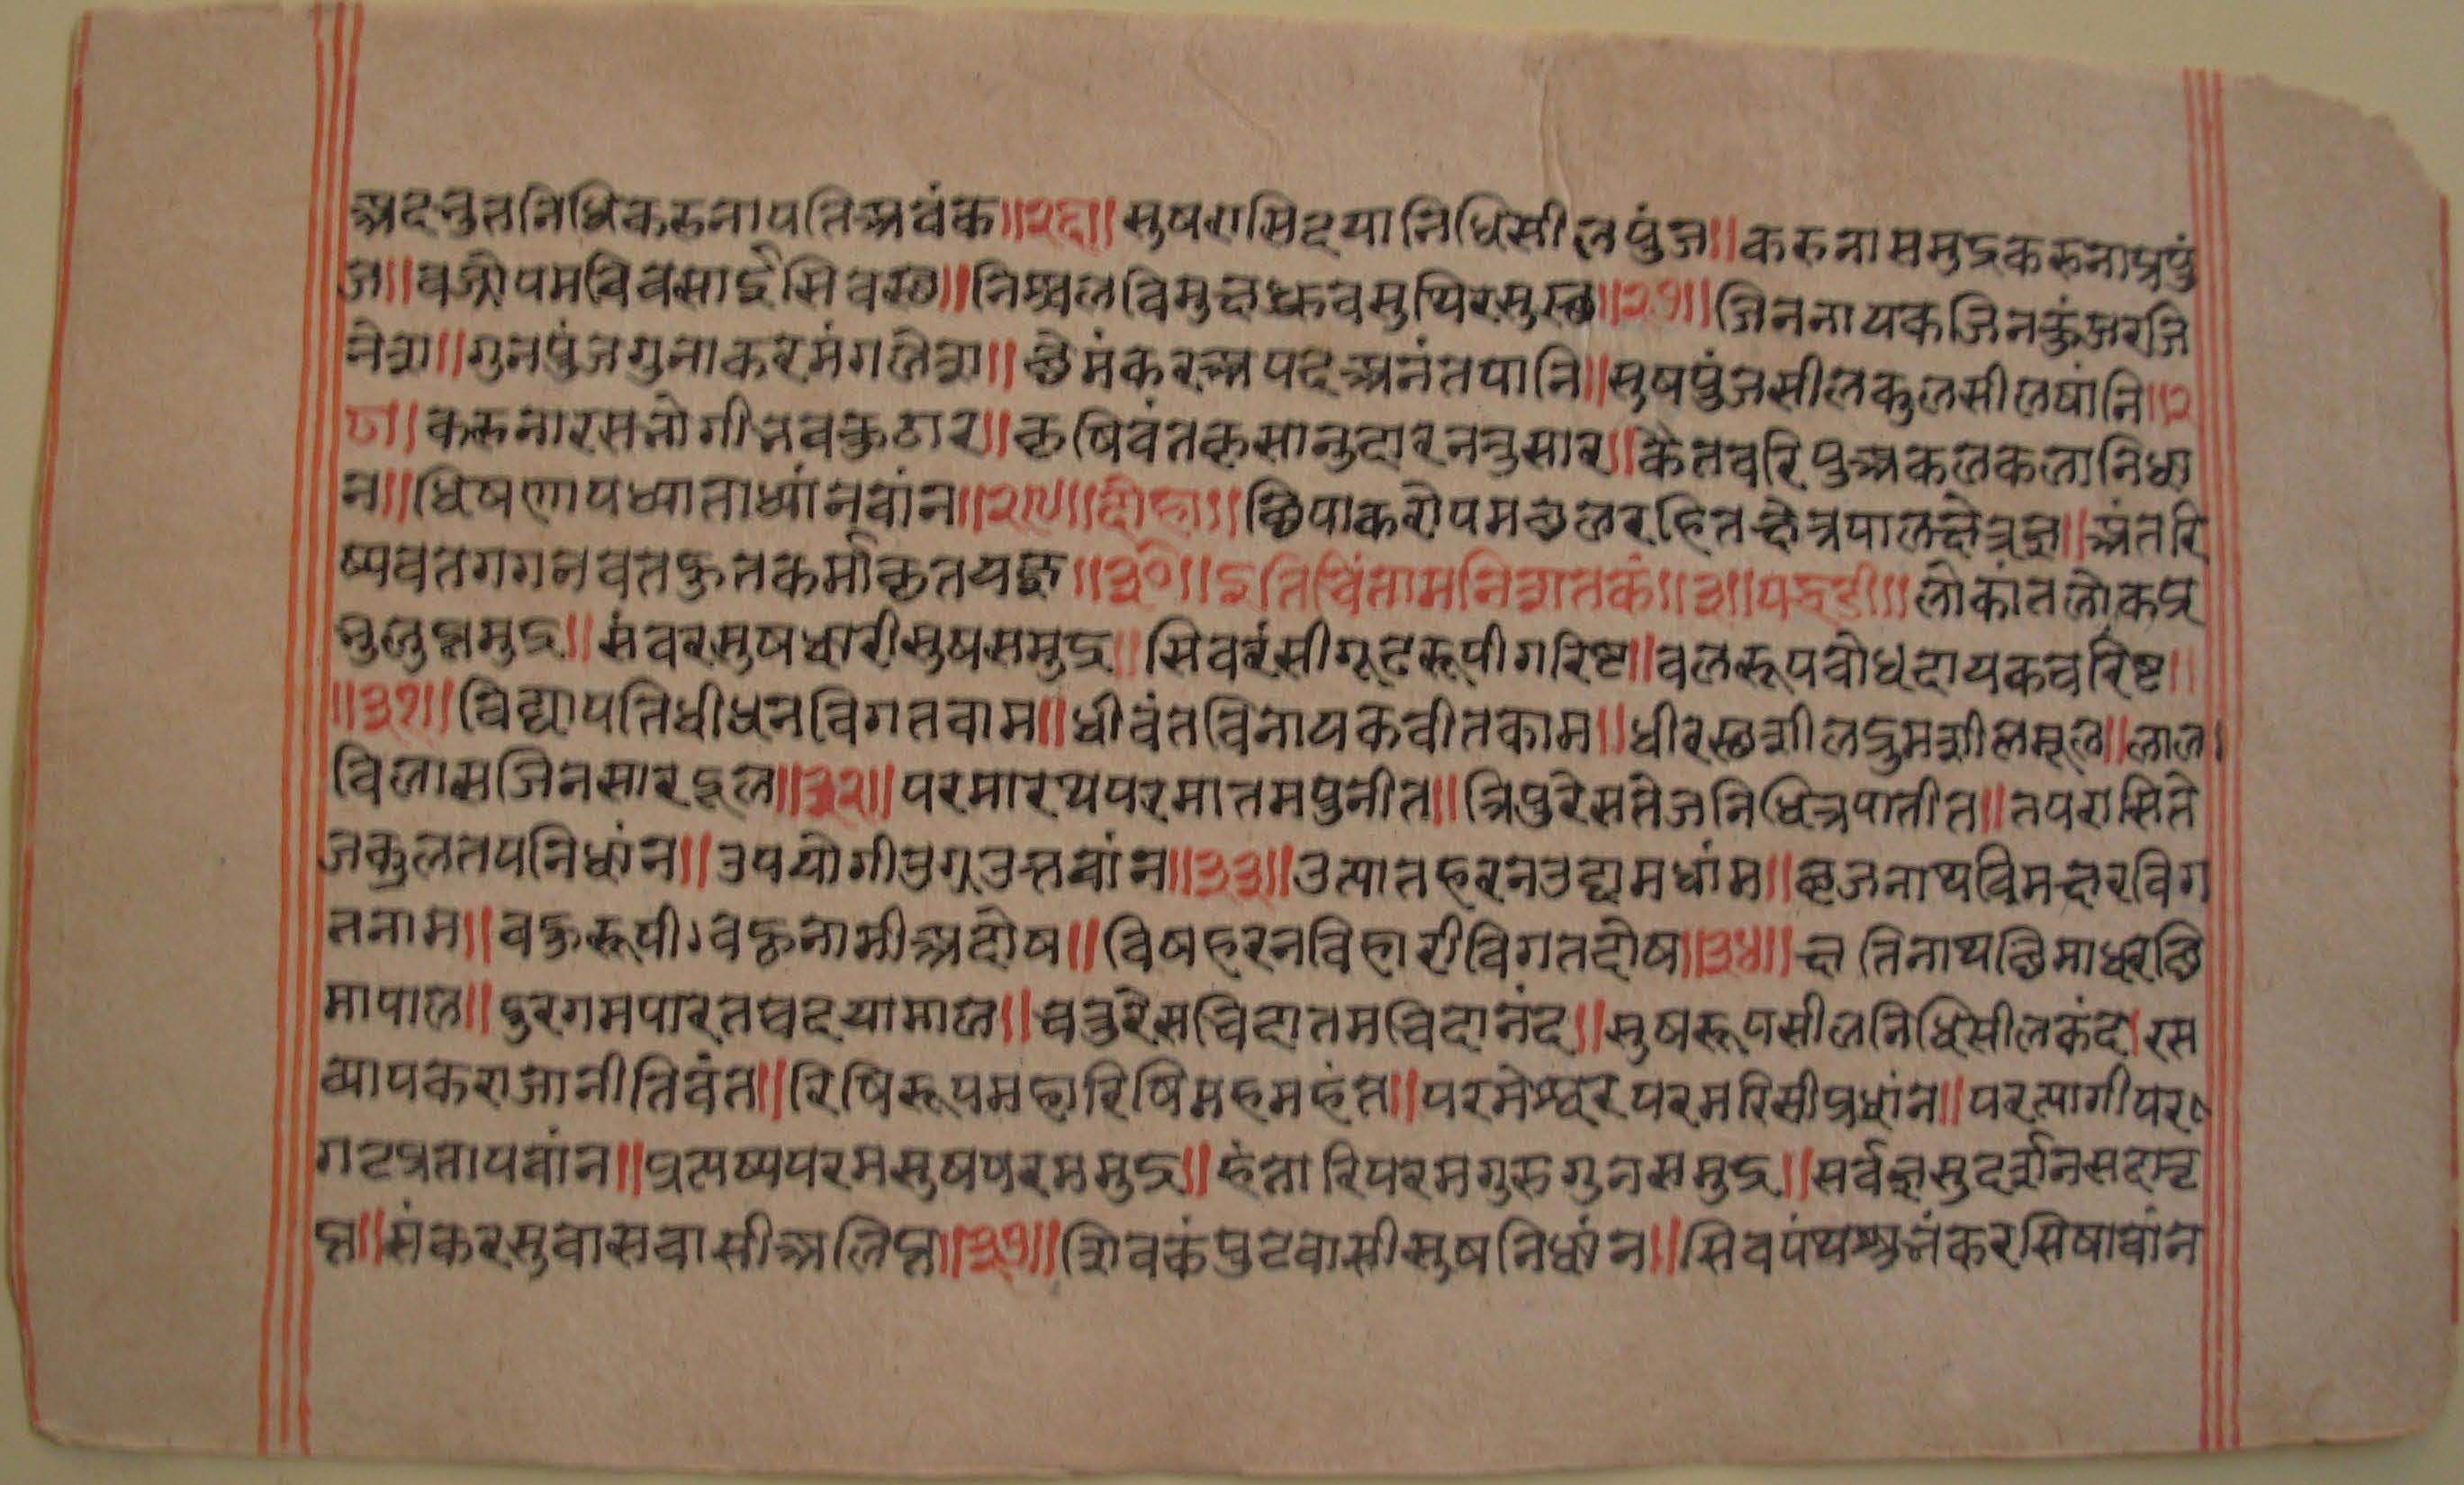 अदभुतनिधिकरुनापतिअवंक॥२६॥सुषरासिदयानिधिसीलपुंज॥करुनासमुद्रकरुनाप्रपुं
ज॥वज्रोपमविवसाईसिवस्छ॥निश्चलविमुक्तध्रुवसुथिरसुस्छ॥२७॥जिननायकजिनकुंजरजि
नेश॥गुनपुंजगुनाकरमंगलेश॥छेमंकरअपदअनंतपानि॥सुषपुंजसीलकुलसीलषांनि॥२
८॥करुनारसभोगीभवकुठार॥कृषिवंतकृसानुदारनतुसार॥केतवरिपुअकलकलानिधा
न॥धिषणापध्याताध्यांनवांन॥२९॥दोहा॥छिपाकरोपमछलरहितक्षेत्रपालक्षेत्रज्ञ॥अंतरि
ष्यवतगगनवतकृतकर्माकृतयज्ञ॥३०॥इतिचिंतामनिशतकं॥३॥पद्धडी॥लोकांतलोकप्र
भुलुप्तमुद्र॥संवरसुषधारीसुषसमुद्र॥सिवरंसीगूढरूपीगरिष्ट॥वलरूपबोधदायकवरिष्ट॥
॥३१॥विद्यापतिधीधनविगतवाम॥धीवंतविनायकवीतकाम॥धीरस्छशीलद्रुमशीलमूल॥लाल।
विलासजिनसारदूल॥३२॥परमारथपरमातमपुनीत॥त्रिपुरेसतेजनिधित्रपातीत॥तपरासिते
जकुलतपनिधांन॥उपयोगीउग्रउत्तवांन॥३३॥उत्पातहरनउद्यमधांम॥व्रजनाथविमक्षरविग
तनाम॥वक्तरूपी।वक्तनामीअदोष॥विषहरनविहारीविगतदोष॥३४॥क्षितिनाथछिमाधरछि
मापाल॥दुरगमपारतस्वदयामाल॥चतुरेसचिदातमचिदानंद॥सुषरूपसीलनिधिसीलकंद।रस
व्यापकराजानीतिवंत॥रिषिरूपमहारिषिमहमहंत॥परमेश्वरपरमरिसीप्रधांन॥परत्यागीपर
गटप्रतापवांन॥प्रत्यष्यपरमसुषपरममुद्र॥हंतारिपरमगुरुगुनसमुद्र॥सर्वज्ञसुदर्शनसदातृ
प्त॥संकरसुवासवासीअलिप्त॥३७॥शिवकंपुटवासीसुषनिधांन॥सिवपंथशुभंकरसिषावांन